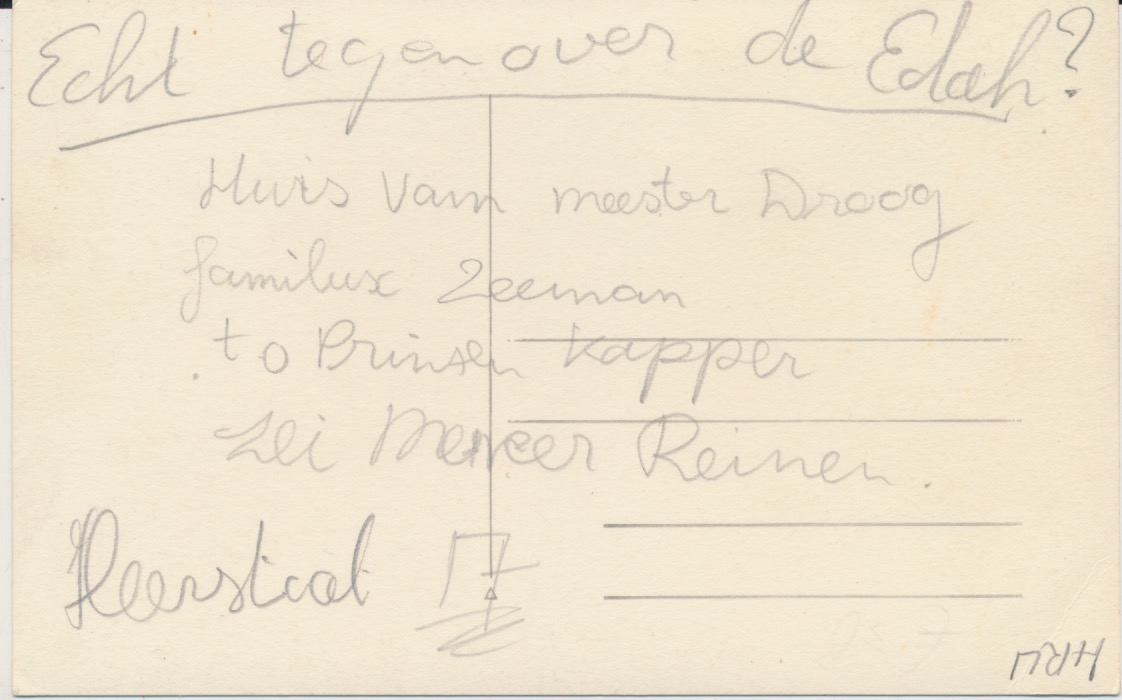 Echt tegenover de Edah?
Huis van meester Droog
familie Zeeman
to Prinsen Kapper
zei Meneer Reinen.
Heerstraat 17